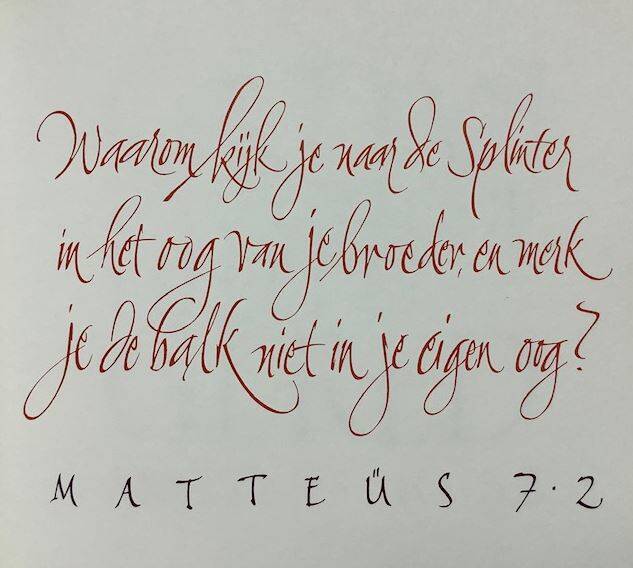 Waarom kijk je naar de Splinter
in het oog van je broeder, en merk
je de balk niet in je eigen oog?
MATTEÜS 7·2